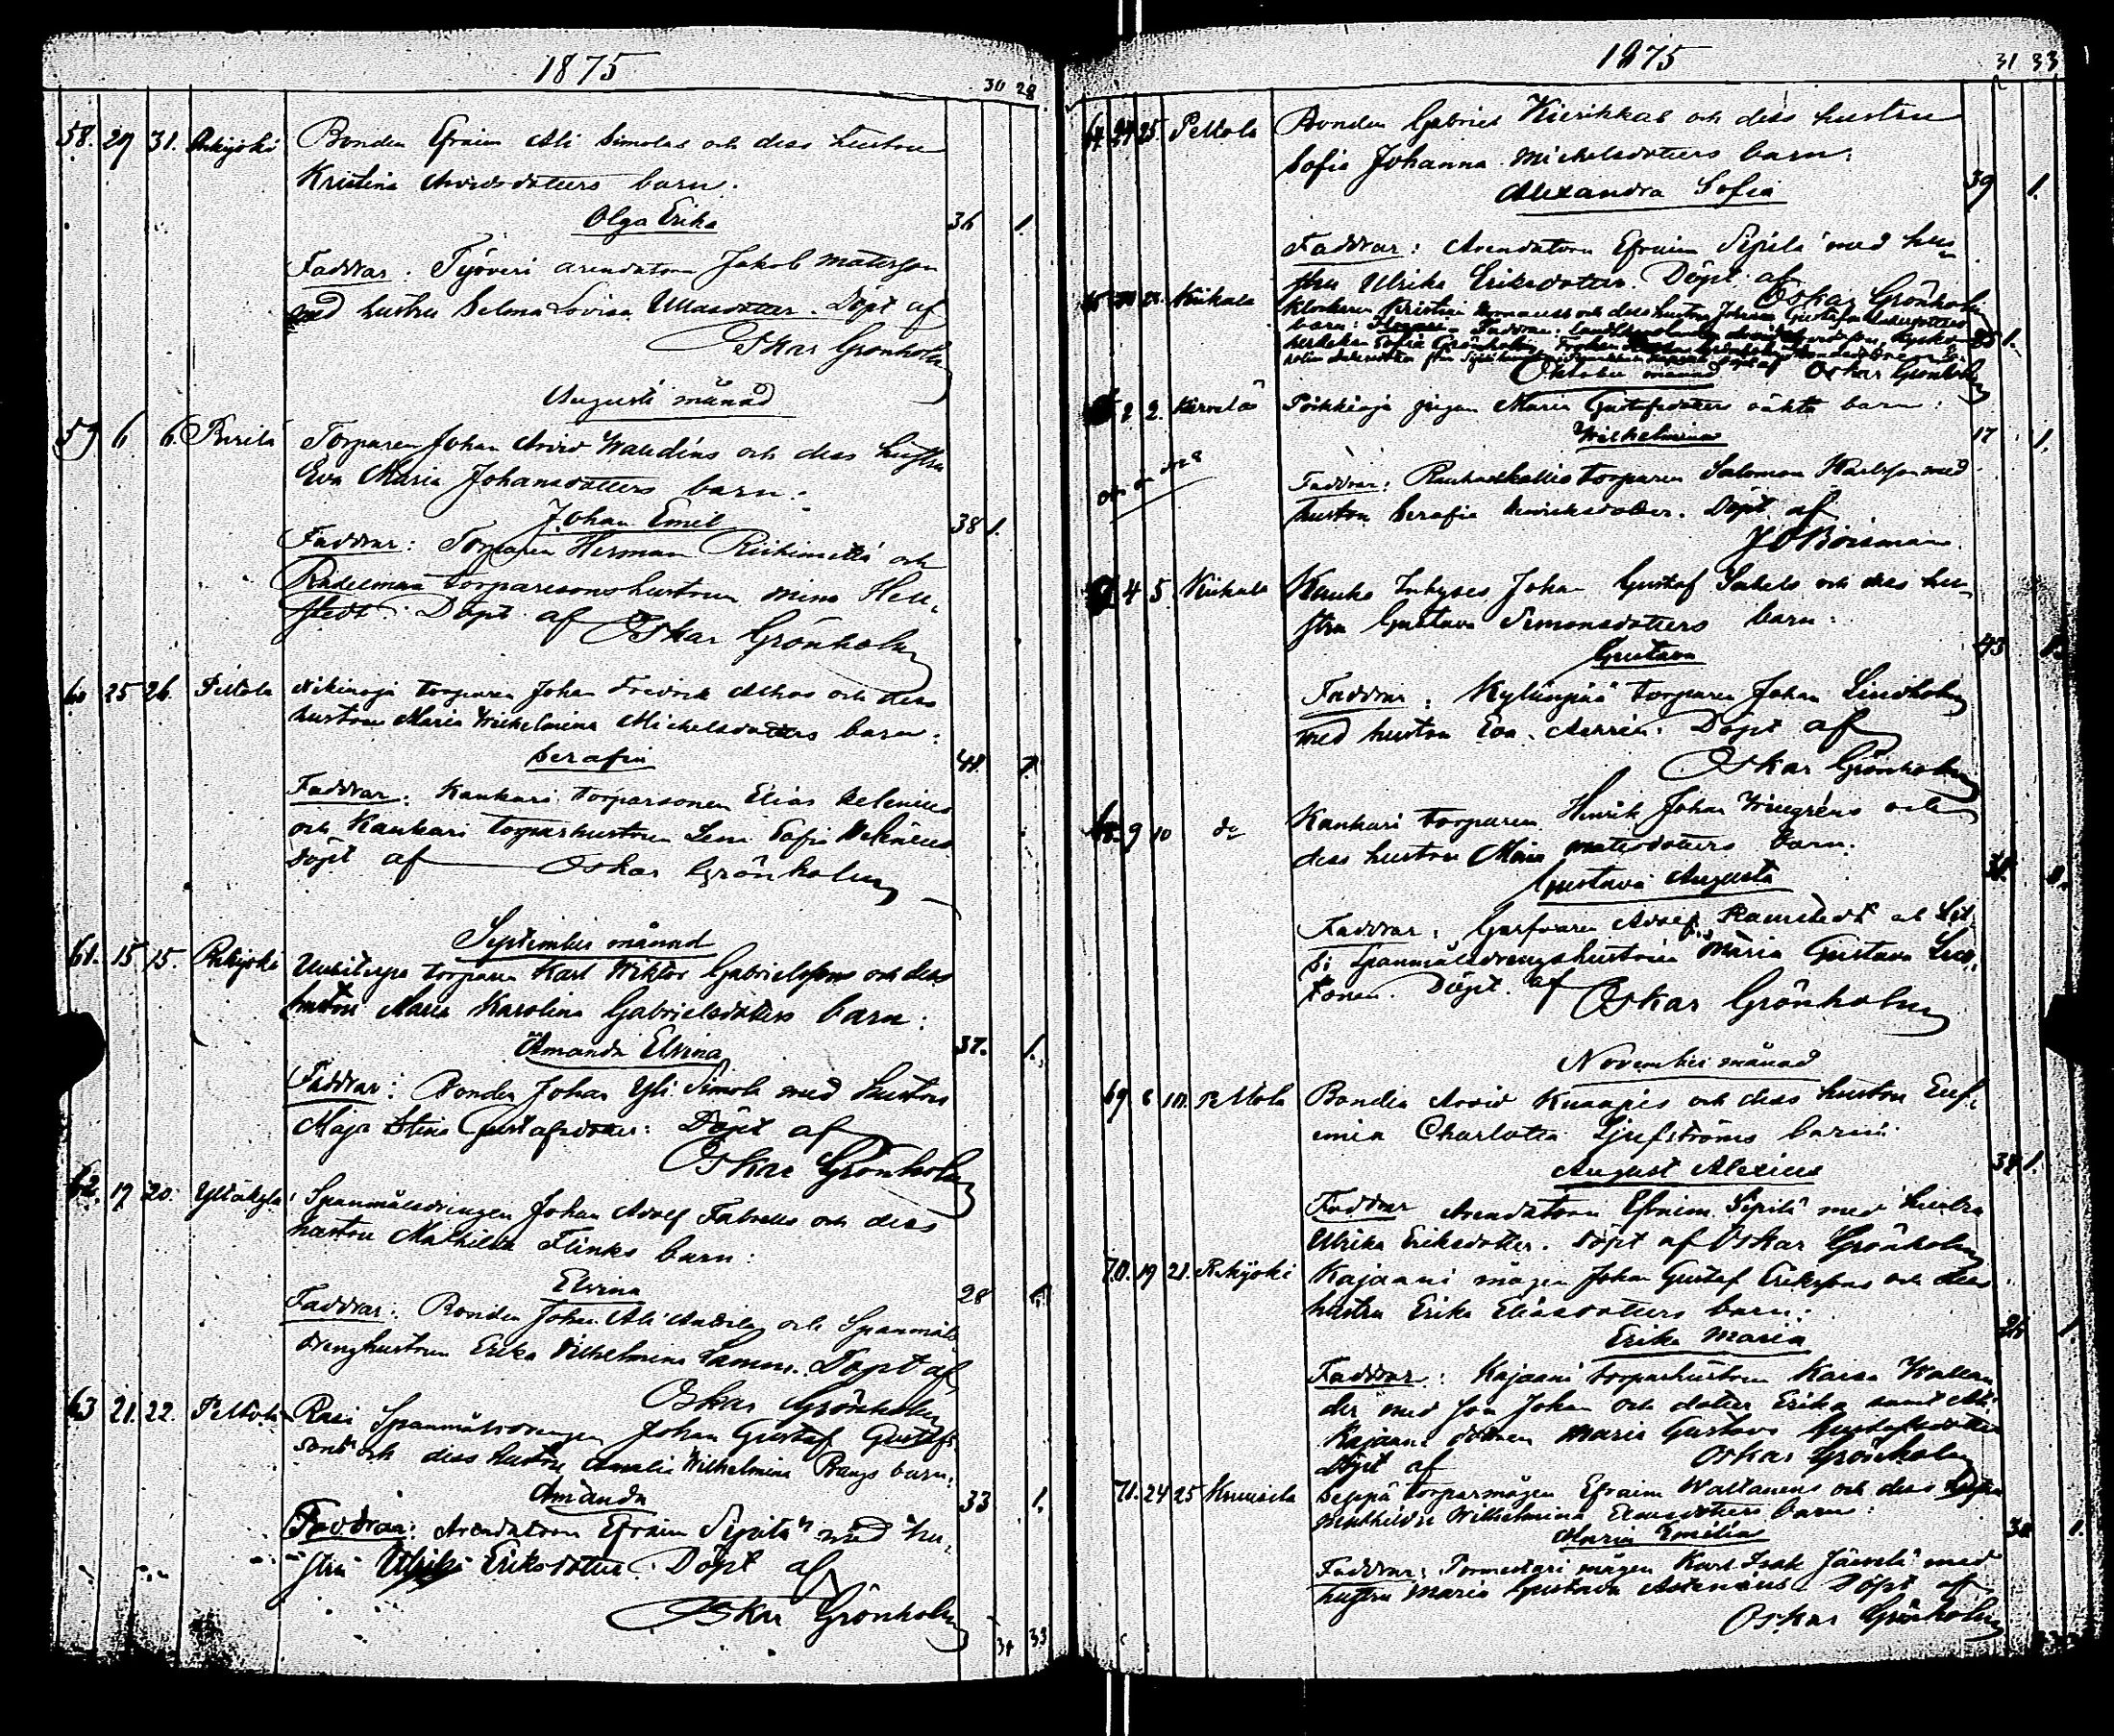 1875
30 28
58. 29 31. Rekijoki Bonden Efraim Ali Simolas och dess hustru
Kristina Arvidsdotters barn.
Olga Erika
36 1.
Faddrar: Työveri arendatorn Jakob Matsson
med hustru Selma Lovisa Ullasdotter. Döpt af
Oskar Grönholm
Augusti månad
59 6 6. Pirilä Torparen Johan Arvid Waledins och dess hustru
Eva Maria Johansdotters barn:
Johan Emil
38 1.
Faddrar: Torparen Herman Riihimäki och
torparesonshustrun Mina Hell-
stedt. Döpt af Oskar Grönholm
60 25 26. Peltola Nikinoja torparen Johan Fredrik och dess
hustru Maria Wilhelmina Michelsdotters barn:
Serafia
41. 1.
Faddrar: Kankari torparsonen Elias Selenius
och Kankari torparhustrun Lena Sofia Selenius
döpt af Oskar Grönholm
September månad
61. 15 15. Rekijoki torparen Karl Wiktor Gabrielssons och dess
hustru Maria Karolina Gabrielsdotters barn:
Amanda Elvina
37. 1.
Faddrar: Bonden Johan Yli Simola med hustru
Maja Stina Gustafsdotter: Döpt af
Oskar Grönholm
62. 19 20. Yltäkylä Spanmålsdrängen Johan Adolf och dess
hustru Mathilda Flinks barn:
Elvina
28 1.
Faddrar: Bonden Johan Ali Anttila och Spanmåls
drenghustrun Erika Wilhelmina Lamm. Döpt af
Oskar Grönholm
63 21. 22. Peltola Rasi Spanmålsdrengen Johan Gustaf Gustafs-
sons och dess hustru Amalia Wilhelmina Bangs barn:
Amanda
33 1.
Faddrar: Arendatorn Efraim Sipilä med hu-
stru Ulrika Eriksdotter. Döpt af
Oskar Grönholm
34 33
1875
31 33
64 24 25 Peltola Bonden Gabriel Kierikkas och dess hustru
Sofia Johanna Michelsdotters barn:
Alexandra Sofia
39 1.
Faddrar: Arendatorn Efraim Sipilä med hu-
stru Ulrika Eriksdotter. Döpt af
Oskar Grönholm
Kiikala Klockaren Kristian och dess hustru Johanna Gustafva
barn: Faddrar:
Sofia Grönholm, Fröken
Oskar Grönholm
Oktober månad
2 2. Kärvelä pigan Maria Gustafsdotters oäkta barn:
Wilhelmina
17 1.
Faddrar: Rauhankallio torparen Salomon Karlsson med
hustru Serafia Henriksdotter. Döpt af
J O Boisman
4 5. Kiikala Kauko Inhyses Johan Gustaf och dess hu-
stru Gustava Simonsdotters barn:
Gustava
43 1.
Faddrar: Kylänpää torparen Johan Lindholm
med hustru Eva. Döpt af
Oskar Grönholm
68. 9 10 do Kankari torparen Henrik Johan Wingréns och
dess hustru Maria Matsdotters barn:
Gustava Augusta
1.
Faddrar: Garfvaren Adolf Ramstedt och
Spanmålsdrengshustrun Maria Gustava
Döpt af Oskar Grönholm
November månad
69 6 10. Peltola Bonden Arvid Knaapis och dess hustru Euf-
emia Charlotta barn:
August Alexius
38 1.
Faddrar Arendatorn Efraim Sipilä med hustru
Ulrika Eriksdotter. Döpt af Oskar Grönholm
70. 19 21. Rekijoki Kajaani mågen Johan Gustaf Erikssons och dess
hustru Erika Eliasdotters barn:
Erika Maria
26 1.
Faddrar: Kajaani torparhustrun Kaisa Kallan-
der med son Johan och dotter Erika samt Ali
Kajaani dottren Maria Gustava Gustafsdotter
Döpt af Oskar Grönholm
71. 24 25 Kruusila Seppä torparmågen Efraim Waltanens och dess hustru
Mathilda Wilhelmina barn:
Maria Emilia
30 1.
Faddrar: mågen Karl Isak Järvelä med
hustru Maria Gustava Döpt af
Oskar Grönholm